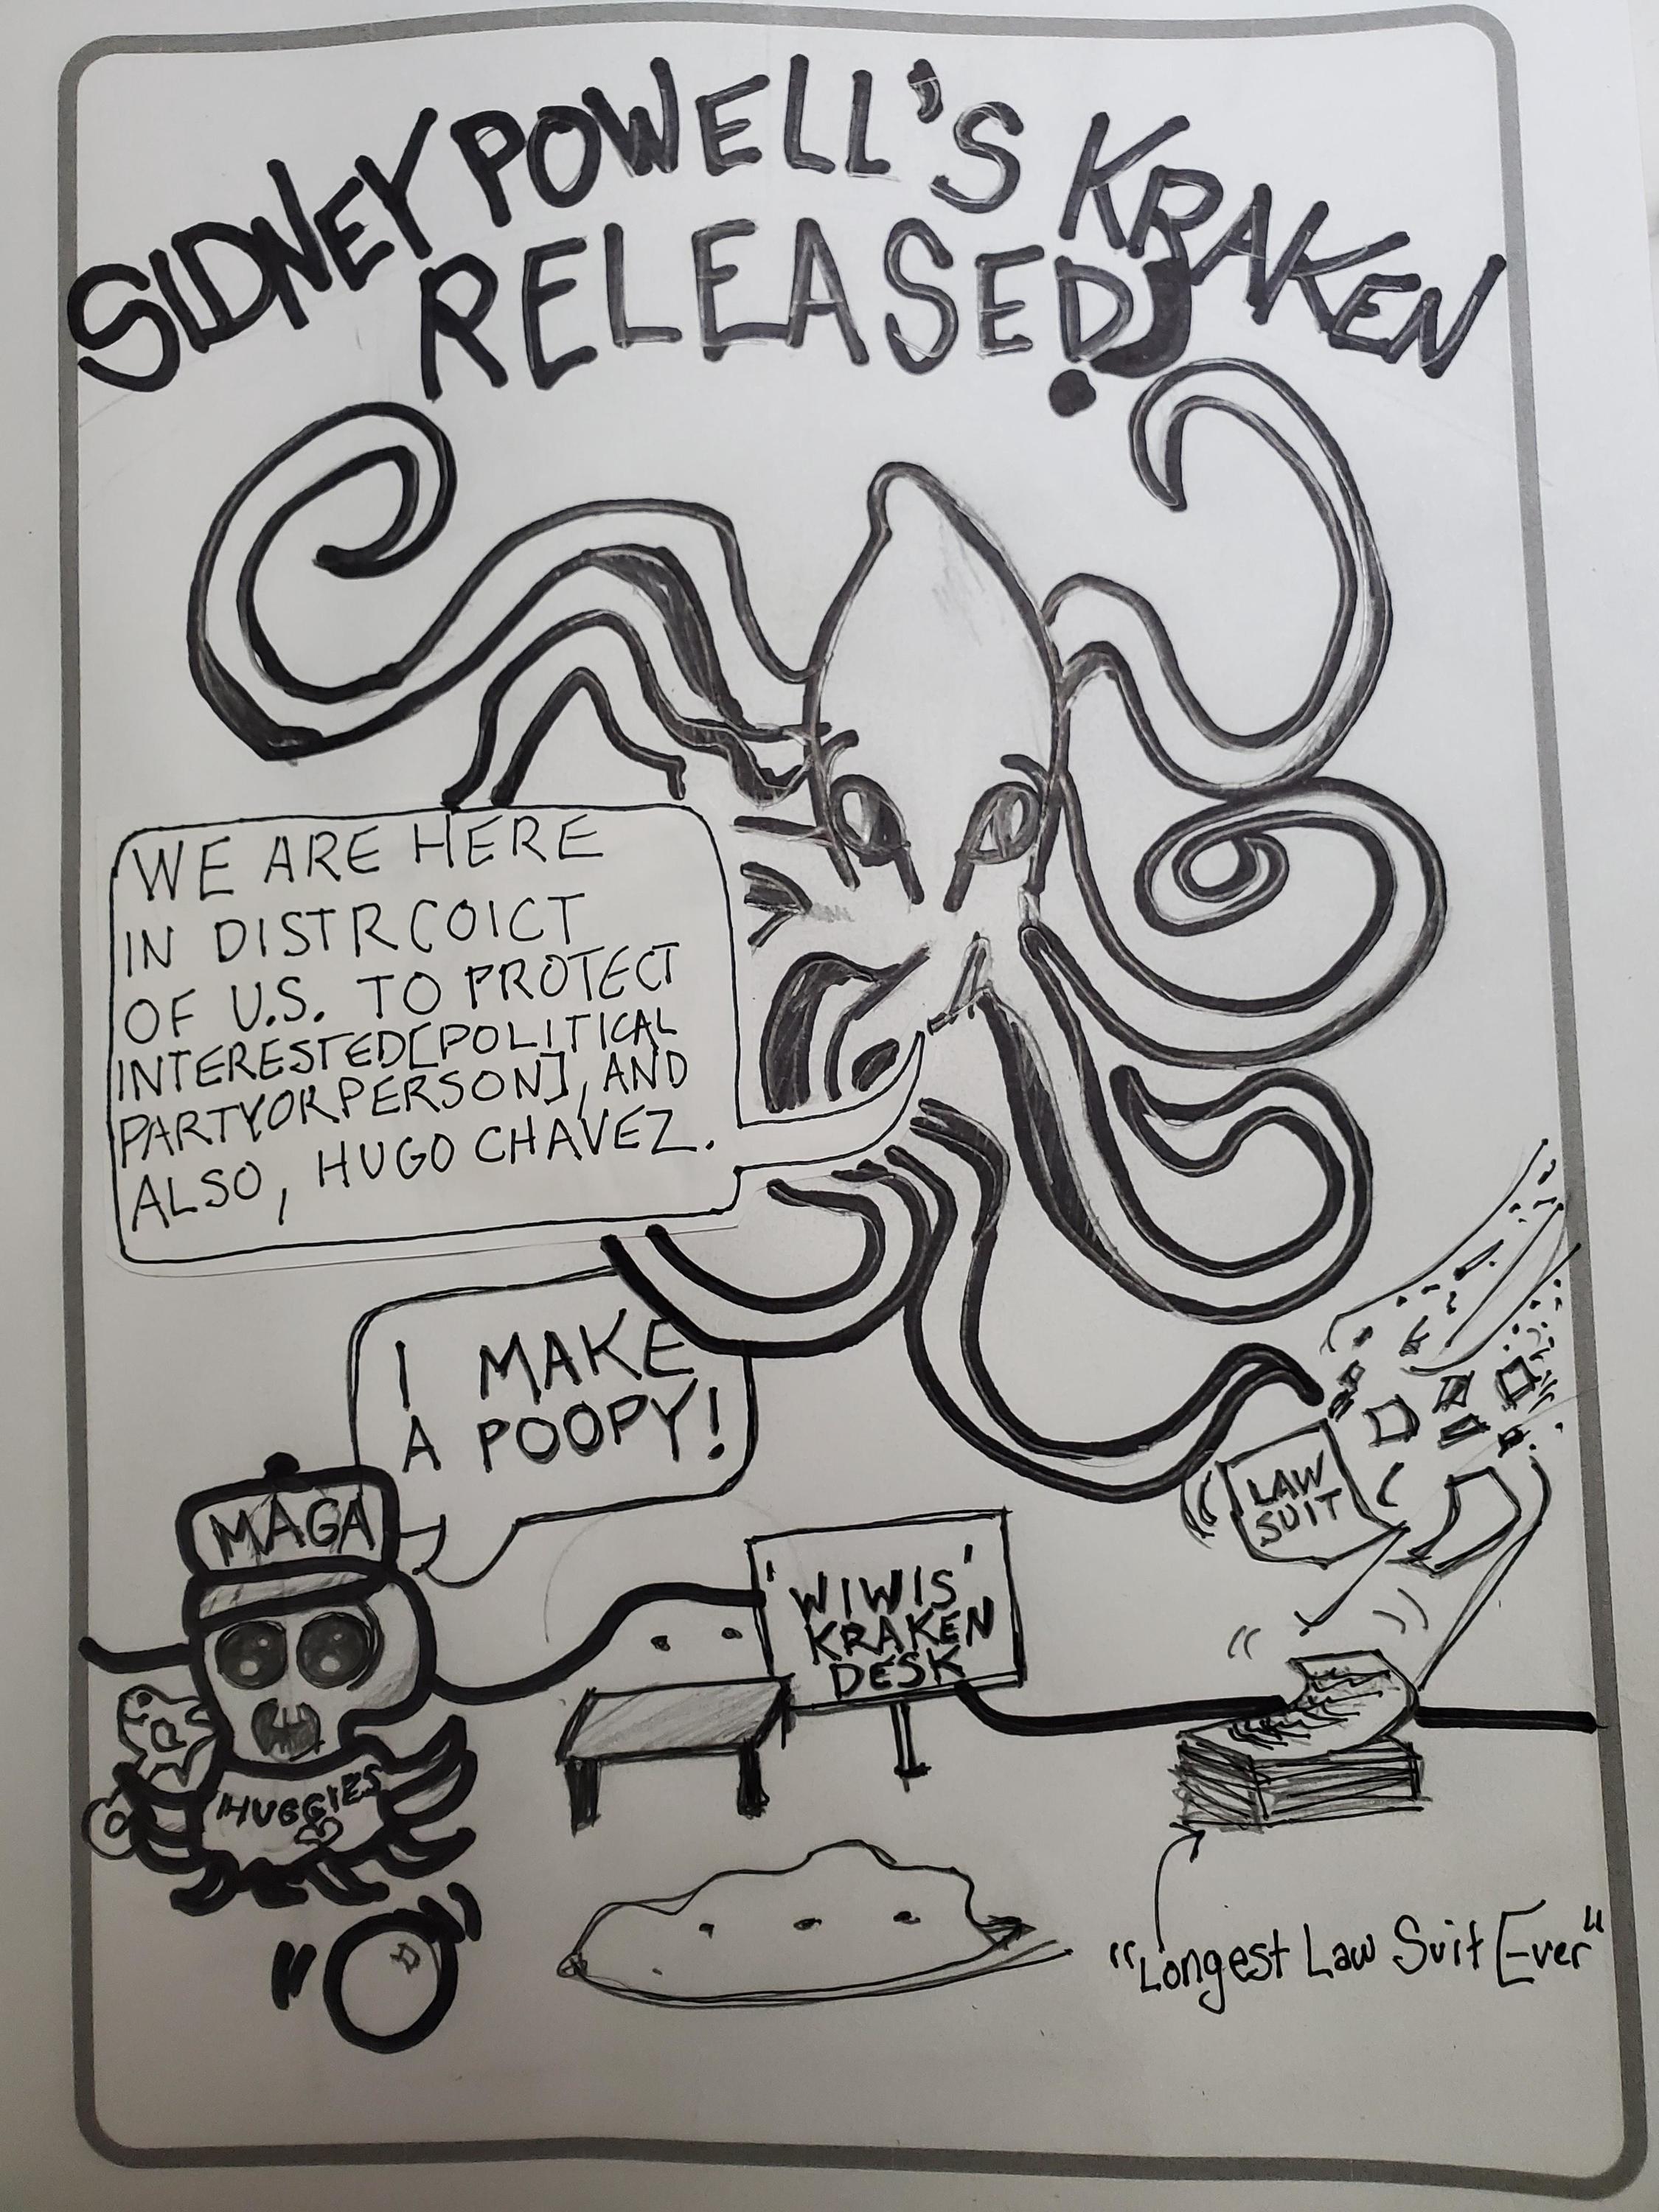 SIDNEY POWELL'S KRAKEN
RELEASED!
WE ARE HERE
IN DISTRCOICT
OF U.S. TO PROTECT
INTERESTED[POLITICAL
PARTYORPERSON], AND
ALSO, HUGO CHAVEZ.
I MAKE
A POOPY!
MAGA
HUGGIES
'WIWIS'
KRAKEN
DESK
LAW
SUIT
"Longest Law Suit Ever"